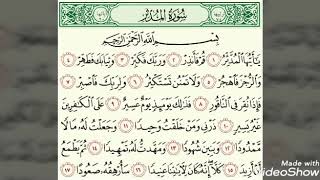 سُورَةُ الْمُدَّثِّرِ
بِسْمِ اللَّهِ الرَّحْمَٰنِ الرَّحِيمِ
يَا أَيُّهَا الْمُدَّثِّرُ ١ قُمْ فَأَنذِرْ ٢ وَرَبَّكَ فَكَبِّرْ ٣ وَثِيَابَكَ فَطَهِّرْ ٤
وَالرُّجْزَ فَاهْجُرْ ٥ وَلَا تَمْنُن تَسْتَكْثِرُ ٦ وَلِرَبِّكَ فَاصْبِرْ ٧
فَإِذَا نُقِرَ فِي النَّاقُورِ ٨ فَذَٰلِكَ يَوْمَئِذٍ يَوْمٌ عَسِيرٌ ٩ عَلَى الْكَافِرِينَ
غَيْرُ يَسِيرٍ ١٠ ذَرْنِي وَمَنْ خَلَقْتُ وَحِيدًا ١١ وَجَعَلْتُ لَهُ مَالًا
مَّمْدُودًا ١٢ وَبَنِينَ شُهُودًا ١٣ وَمَهَّدتُّ لَهُ تَمْهِيدًا ١٤ ثُمَّ يَطْمَعُ
أَنْ أَزِيدَ ١٥ كَلَّا إِنَّهُ كَانَ لِآيَاتِنَا عَنِيدًا ١٦ سَأُرْهِقُهُ صَعُودًا ١٧
Made with
VideoShow